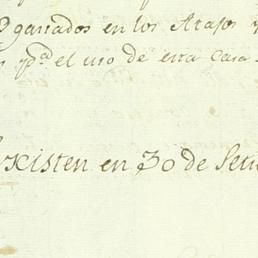 gastados en los Atajos y
pª el uso de esta Casa
Existen en 30 de Seti